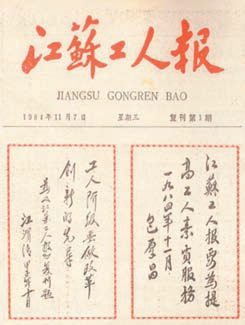 江蘇工人报
JIANGSU GONGREN BAO
1984年11月7日 星期三 复刊第1期
江苏工人报要为提
高工人素质服务
一九八四年十一月
包厚昌
工人阶级要做改革
创新的先锋
江渭清